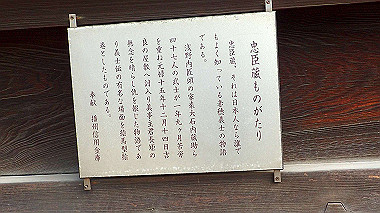 忠臣蔵ものがたり
忠臣蔵、それは日本人なら誰で
もよく知っている赤穂義士の物語
である。
浅野内匠頭の家来大石内蔵助ら
四十七人の武士が一年九ヶ月苦労
を重ね元禄十五年十二月十四日吉
良の屋敷へ討入り見事主君長矩の
無念を晴らし仇を報じた物語であ
り義士伝の有名な場面を絵馬型絵
巻としたものである。
奉献 播州信用金庫